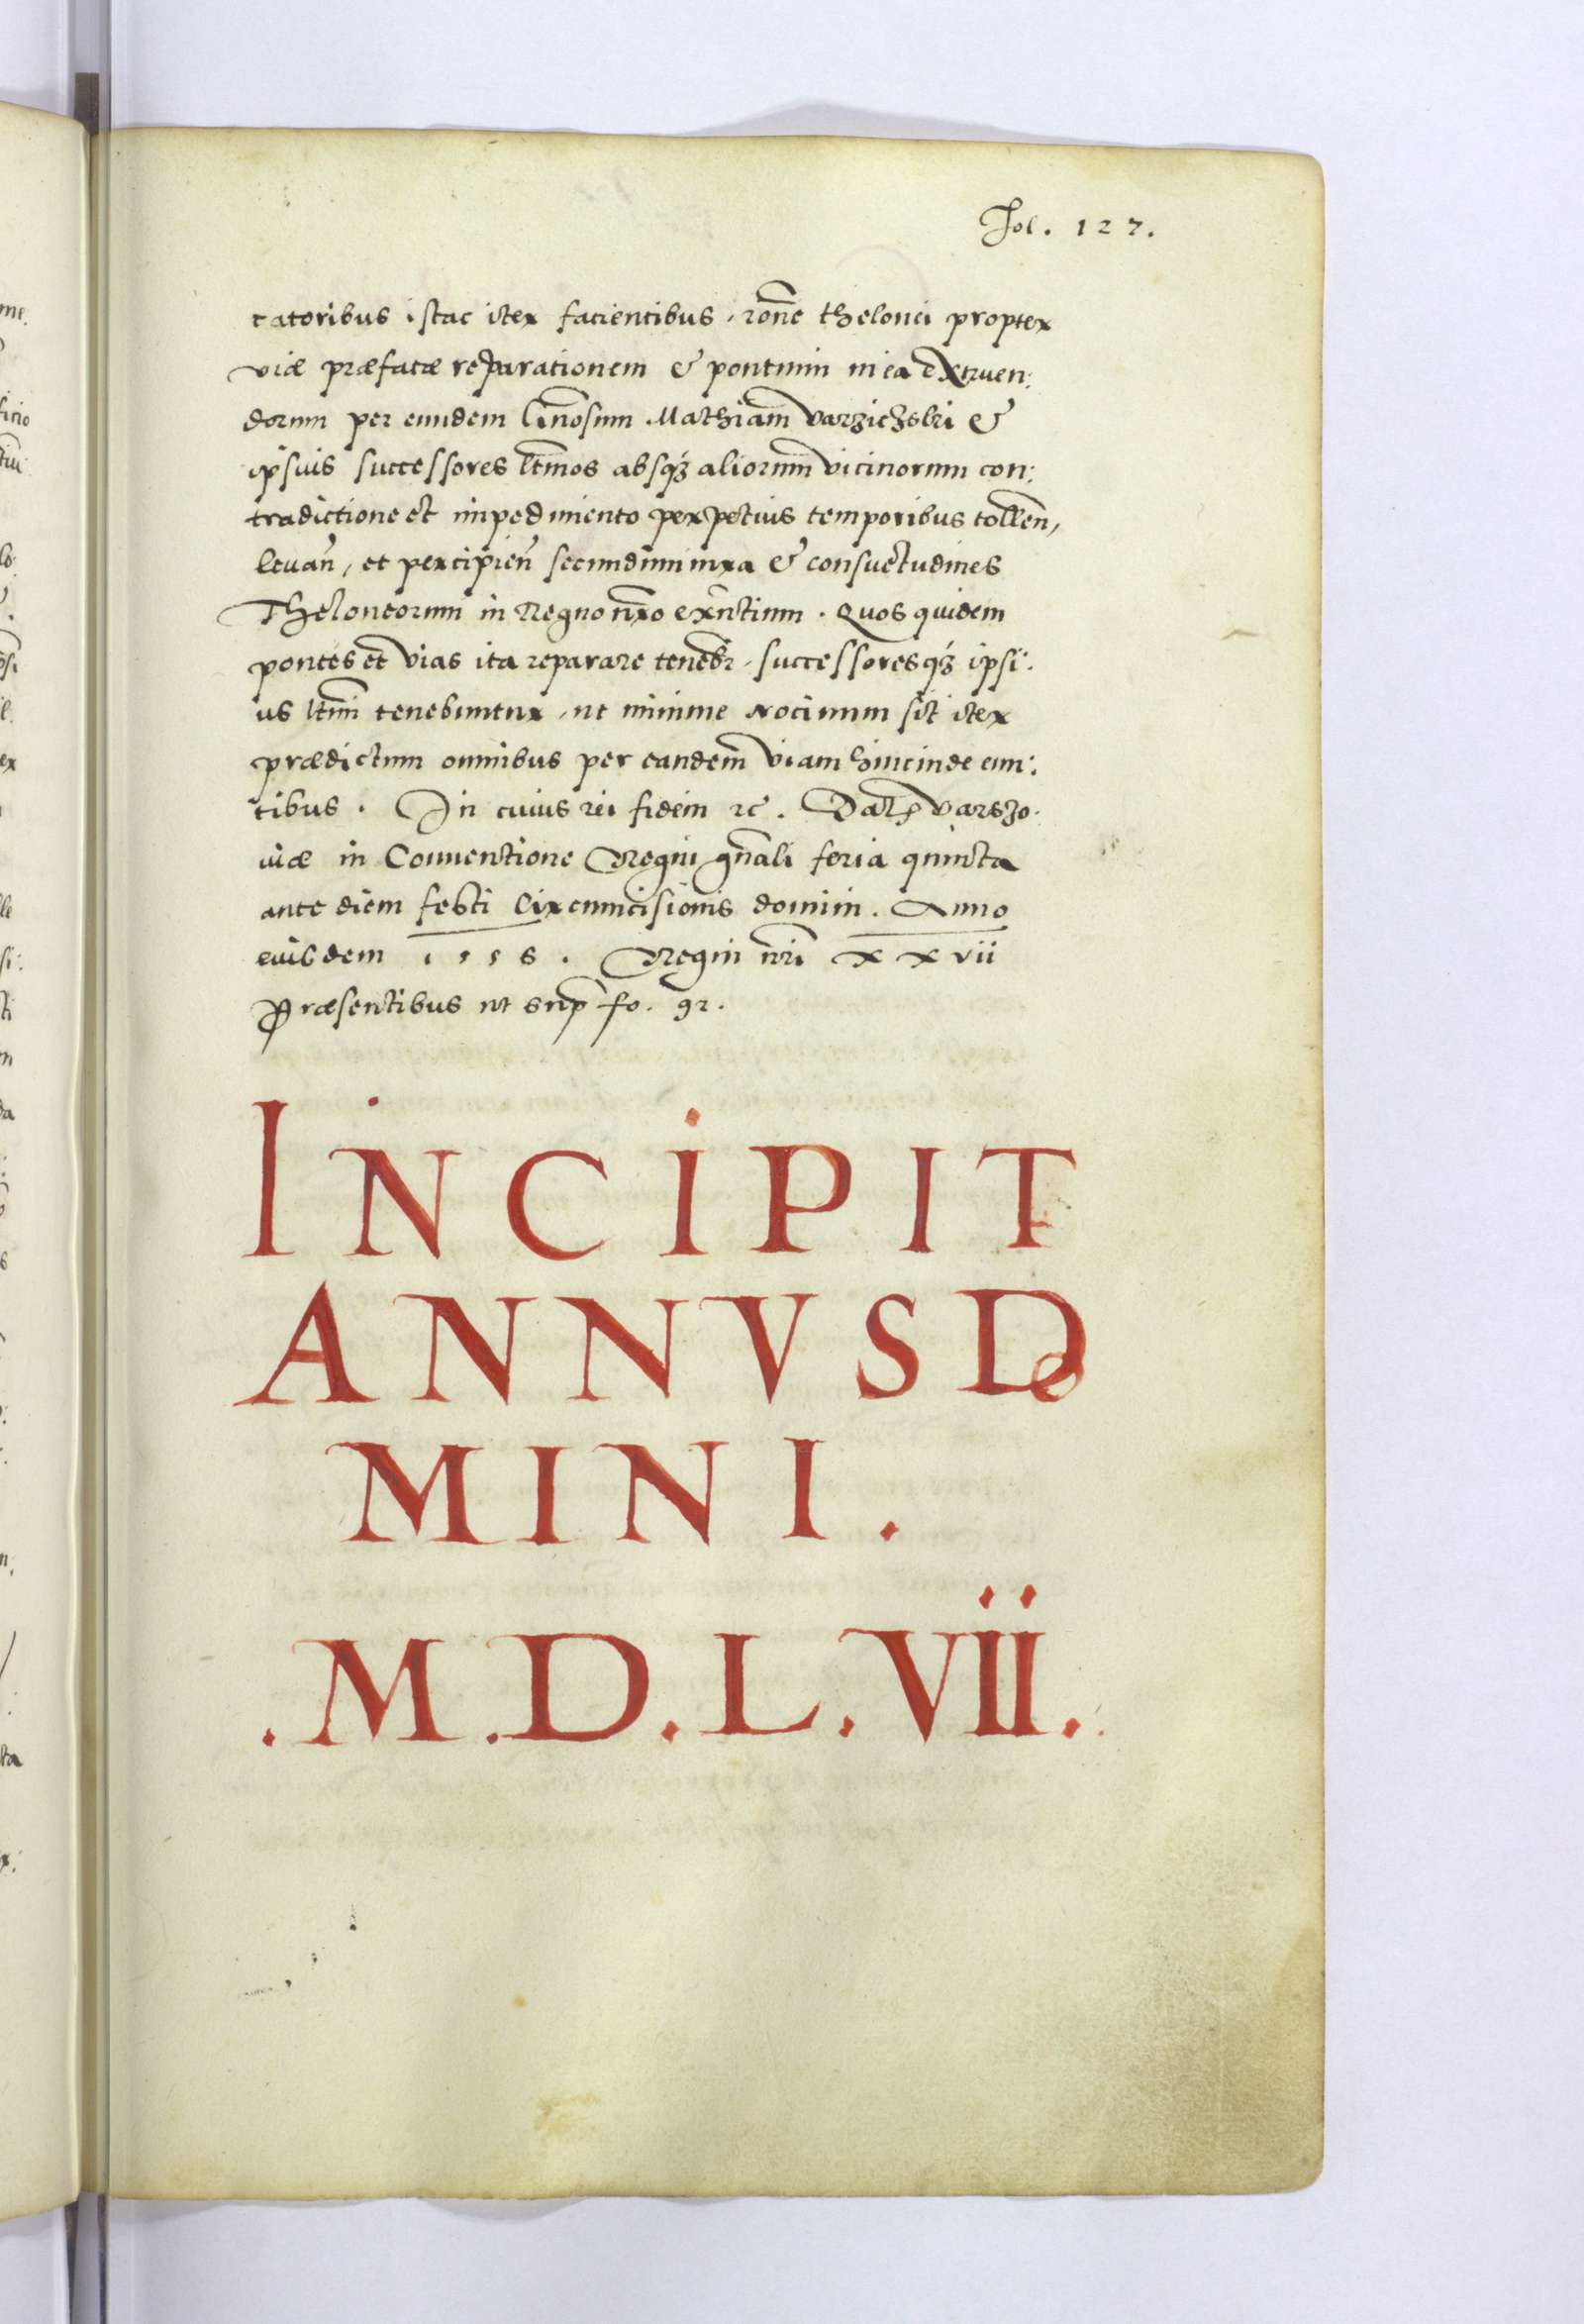 Fol. 127.
catoribus istac iter facientibus, rõne thelonei propter
viæ præfatæ reparationem & pontium in ea extruen:
dorum per eundem Gñosum Mathiam Varzichski &
ipsius successores ltĩmos absqȝ aliorum vicinorum con:
tradictione et impedimento perpetuis temporibus tolleñ,
levañ, et percipieñ secundum iura & consuetudines
Theloneorum in Regno nr̃o exñtium. Quos quidem
pontes et vias ita reparare teneb̃r, successoresqȝ ipsi:
us ltĩmi tenebuntur, ut minime nocivum sit iter
prædictum omnibus per eandem viam hincinde eun:
tibus. In cuius rei fidem ꝛc. Dat̃ Varszo:
viæ in Conventione Regni gñali feria quinta
ante diem festi Circumcisionis domini. Anno
eiusdem 1556. Regni nr̃i xxvii
Præsentibus ut sup̃ fo. 92.
INCIPIT
ANNVS DO
MINI.
.M.D.L.VII.